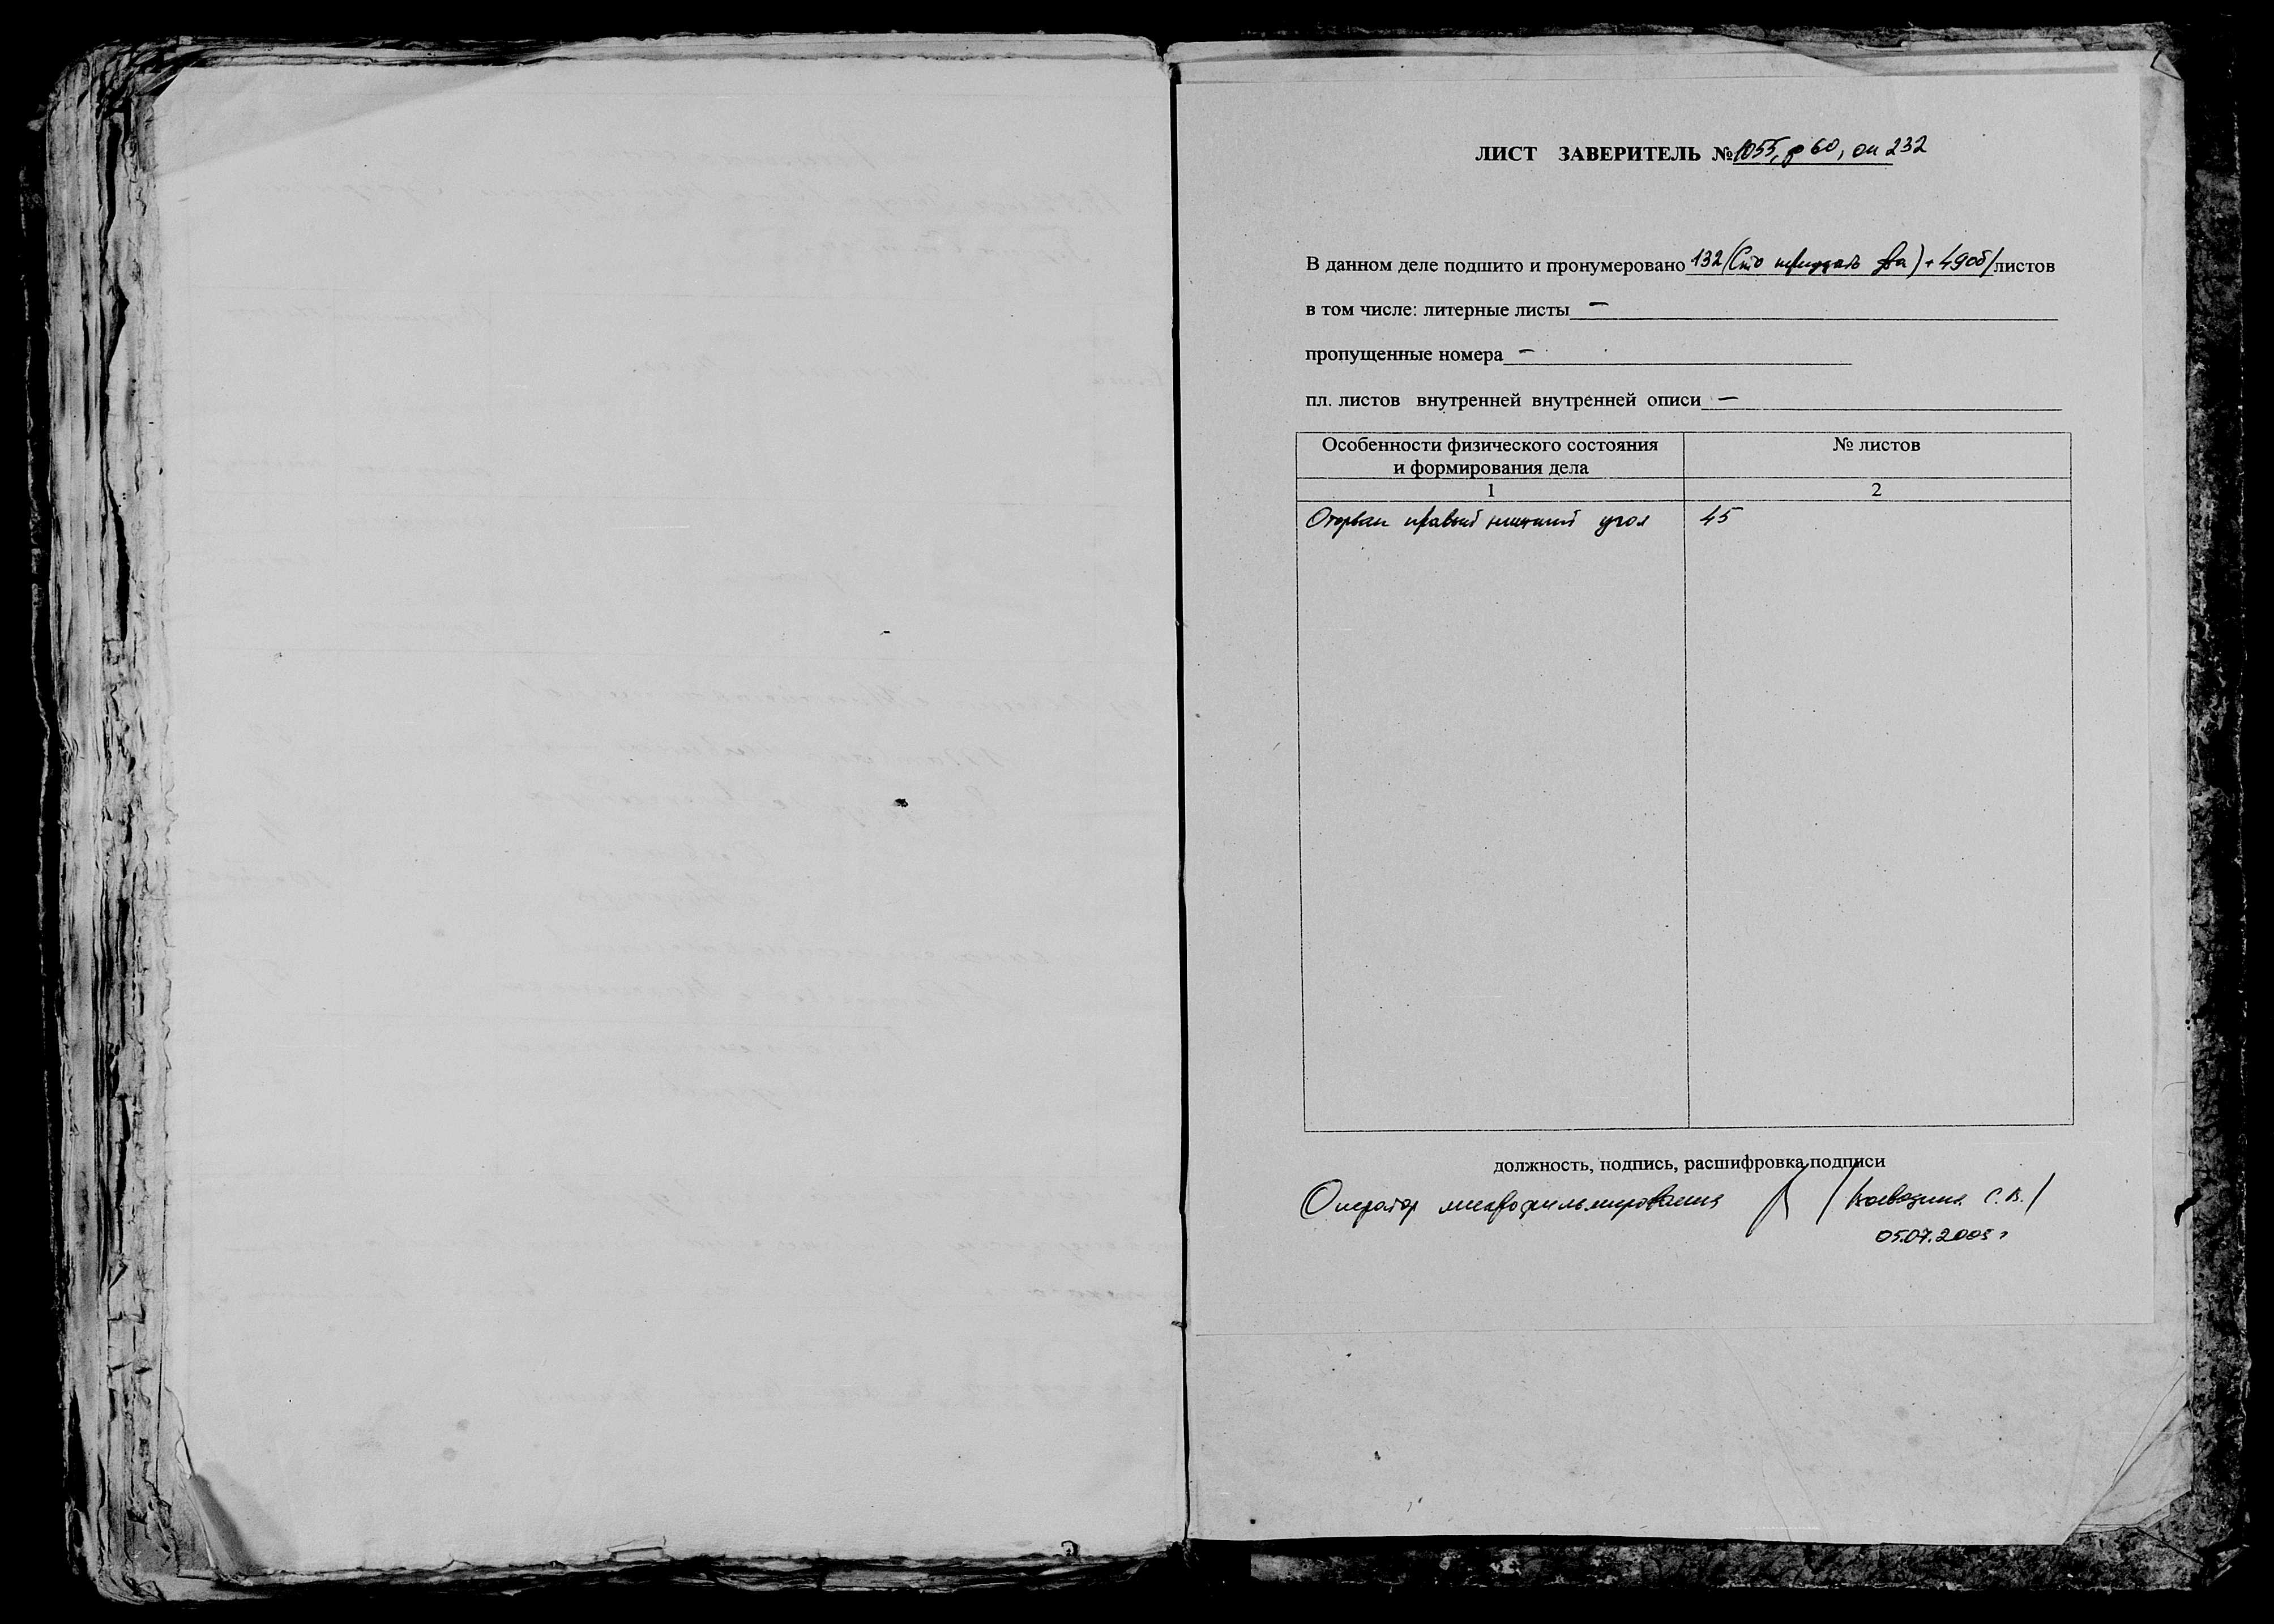 ЛИСТ ЗАВЕРИТЕЛЬ № 1055, ф 60, оп 232
В данном деле подшито и пронумеровано 132 (Сто тридцать два) + 49об/ листов
в том числе: литерные листы —
пропущенные номера —
пл. листов внутренней внутренней описи —
Особенности физического состояния
и формирования дела
№ листов
1
2
Оторван правый нижний угол
45
должность, подпись, расшифровка подписи
Оператор микрофильмирования / С.В./
05.07.2005 г